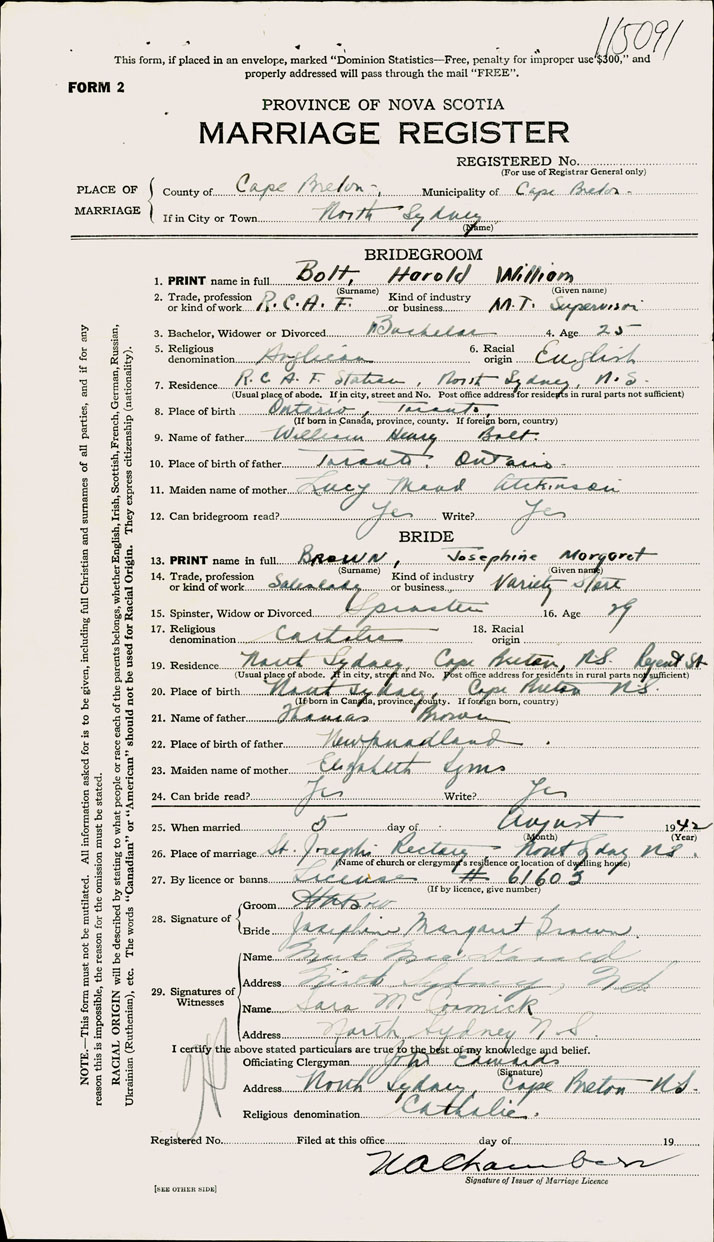 115091
This form, if placed in an envelope, marked "Dominion Statistics—Free, penalty for improper use $300," and
properly addressed will pass through the mail "FREE".
FORM 2
PROVINCE OF NOVA SCOTIA
MARRIAGE REGISTER
REGISTERED No.
(For use of Registrar General only)
PLACE OF MARRIAGE
County of Cape Breton Municipality of Cape Breton
If in City or Town North Sydney
(Name)
BRIDEGROOM
1. PRINT name in full Bolt, Harold William
(Surname) (Given name)
2. Trade, profession or kind of work R.C.A.F. Kind of industry or business M.T. Supervisor
3. Bachelor, Widower or Divorced Bachelor 4. Age 25
5. Religious denomination Anglican 6. Racial origin English
7. Residence R.C.A.F. Station, North Sydney, N.S.
(Usual place of abode. If in city, street and No. Post office address for residents in rural parts not sufficient)
8. Place of birth Ontario, Toronto
(If born in Canada, province, county. If foreign born, country)
9. Name of father William Henry Bolt
10. Place of birth of father Toronto, Ontario
11. Maiden name of mother Lucy Maud Atchinson
12. Can bridegroom read? Yes Write? Yes
BRIDE
13. PRINT name in full BROWN, Josephine Margaret
(Surname) (Given name)
14. Trade, profession or kind of work Saleslady Kind of industry or business Variety Store
15. Spinster, Widow or Divorced Spinster 16. Age 29
17. Religious denomination Catholic 18. Racial origin
19. Residence North Sydney, Cape Breton, N.S. Regent St
(Usual place of abode. If in city, street and No. Post office address for residents in rural parts not sufficient)
20. Place of birth North Sydney, Cape Breton N.S.
(If born in Canada, province, county. If foreign born, country)
21. Name of father Thomas Brown
22. Place of birth of father Newfoundland
23. Maiden name of mother Elizabeth Syms
24. Can bride read? Yes Write? Yes
25. When married 5 day of August 1942
(Month) (Year)
26. Place of marriage St. Joseph's Rectory North Sydney N.S.
(Name of church or clergyman's residence or location of dwelling house)
27. By licence or banns License # 61603
(If by licence, give number)
28. Signature of
Groom
Bride Josephine Margaret Brown
29. Signatures of Witnesses
Name MacDonald
Address North Sydney, N.S.
Name Sara McCormick
Address North Sydney N.S.
I certify the above stated particulars are true to the best of my knowledge and belief.
Officiating Clergyman John Edwards
(Signature)
Address North Sydney, Cape Breton N.S.
Religious denomination Catholic.
Registered No. Filed at this office day of 19
Signature of Issuer of Marriage Licence
[SEE OTHER SIDE]
NOTE.—This form must not be mutilated. All information asked for is to be given, including full Christian and surnames of all parties, and if for any
reason this is impossible, the reason for the omission must be stated.
RACIAL ORIGIN will be described by stating to what people or race each of the parents belongs, whether English, Irish, Scottish, French, German, Russian,
Ukrainian (Ruthenian), etc. The words "Canadian" or "American" should not be used for Racial Origin. They express citizenship (nationality).